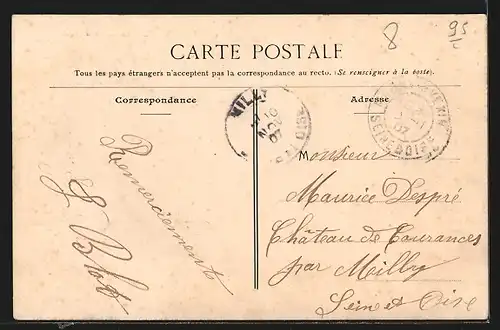 8
95
CARTE POSTALE
Tous les pays étrangers n'acceptent pas la correspondance au recto. (Se renseigner à la poste).
Correspondance
Adresse
MILLY
10
NOV
07
SEINE & OISE
Remerciements
Monsieur
Maurice Despré
Château de Courances
par Milly
Seine et Oise